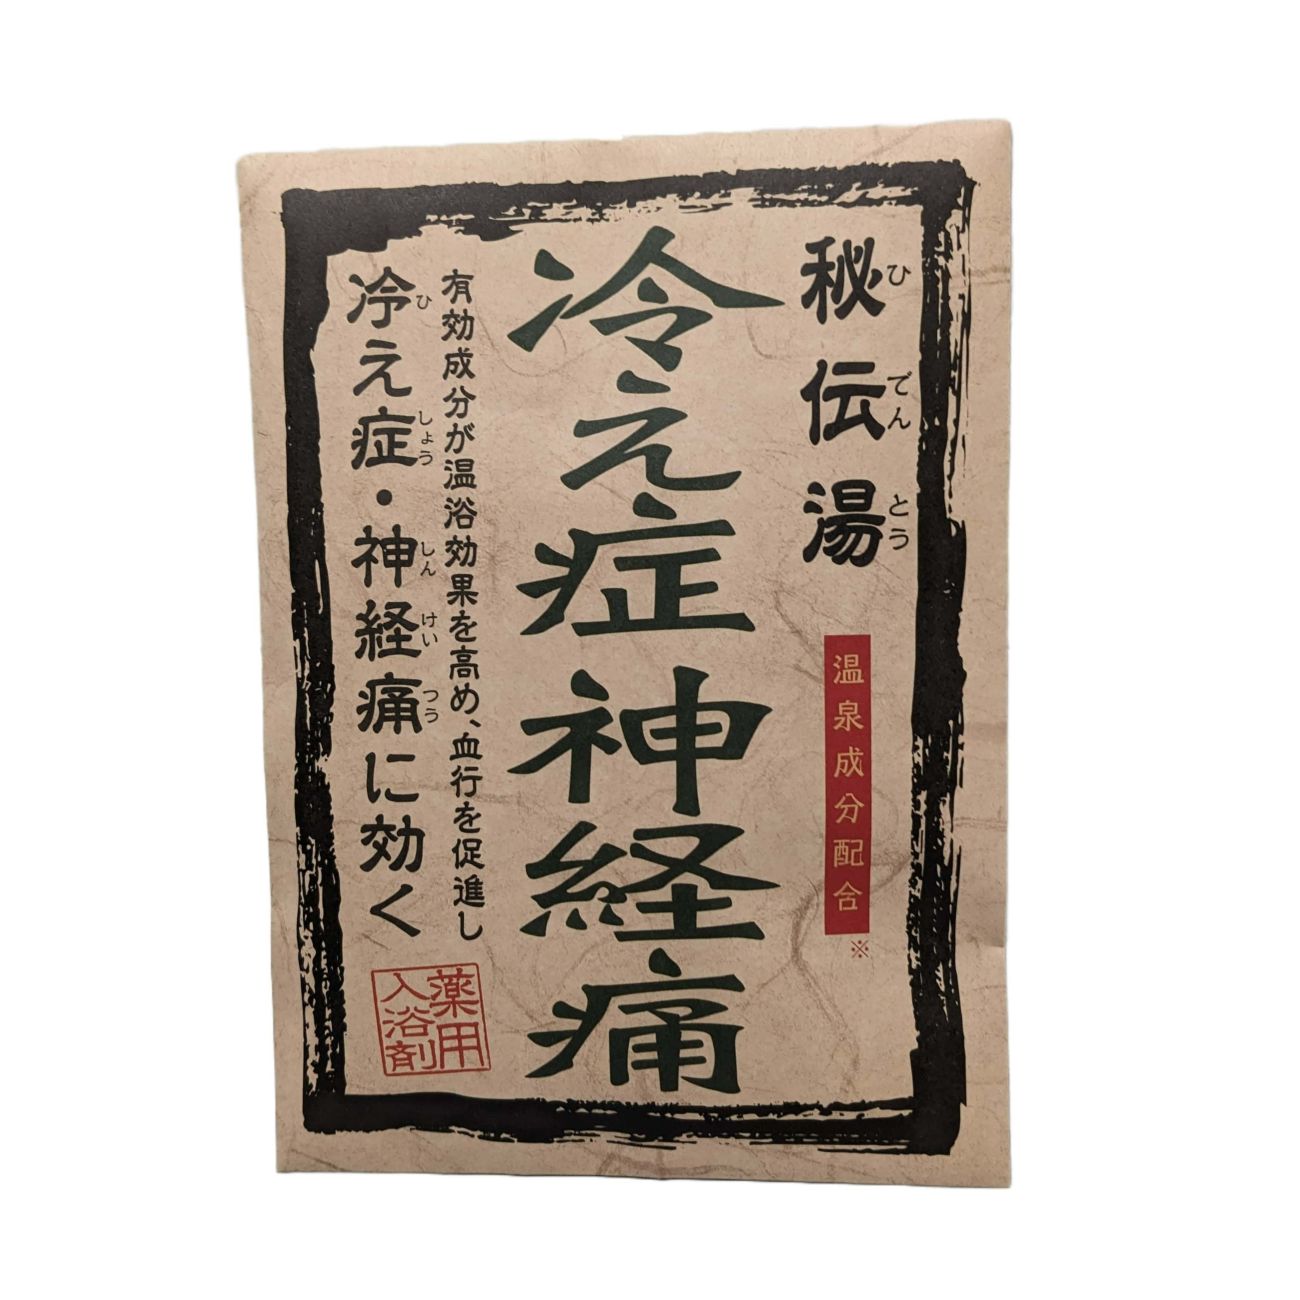 秘伝湯
ひ でん とう
温泉成分配合
※
冷え症神経痛
有効成分が温浴効果を高め、血行を促進し
冷え症・神経痛に効く
ひ しょう しん けい つう
薬用
入浴剤